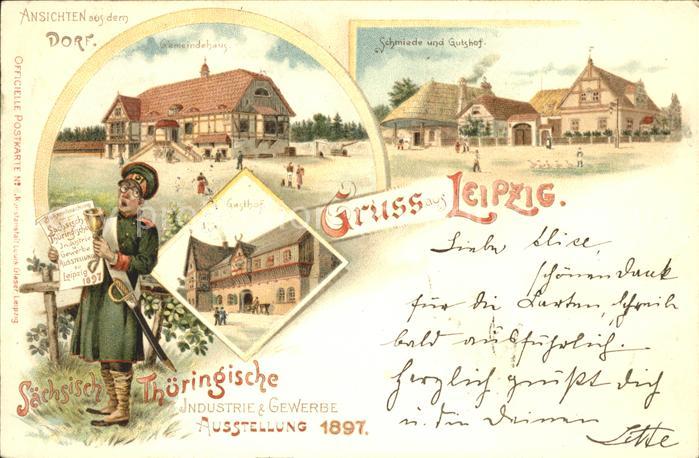 ANSICHTEN aus dem
DORF.
Gemeindehaus.
Schmiede und Gutshof.
OFFICIELLE POSTKARTE No
Kunstanstalt Louis Glaser Leipzig
Gruss aus LEIPZIG.
Gasthof.
Bekanntmachung
Sächsisch
Thüringische
Industrie
Gewerbe
Ausstellung
zu
Leipzig
1897
Liebe Elise,
schönen Dank
für die Karten, schreib
bald ausführlich.
Herzlich grüßt dich
u. die Deinen
Lotte
Sächsisch Thüringische
INDUSTRIE & GEWERBE
AUSSTELLUNG 1897.